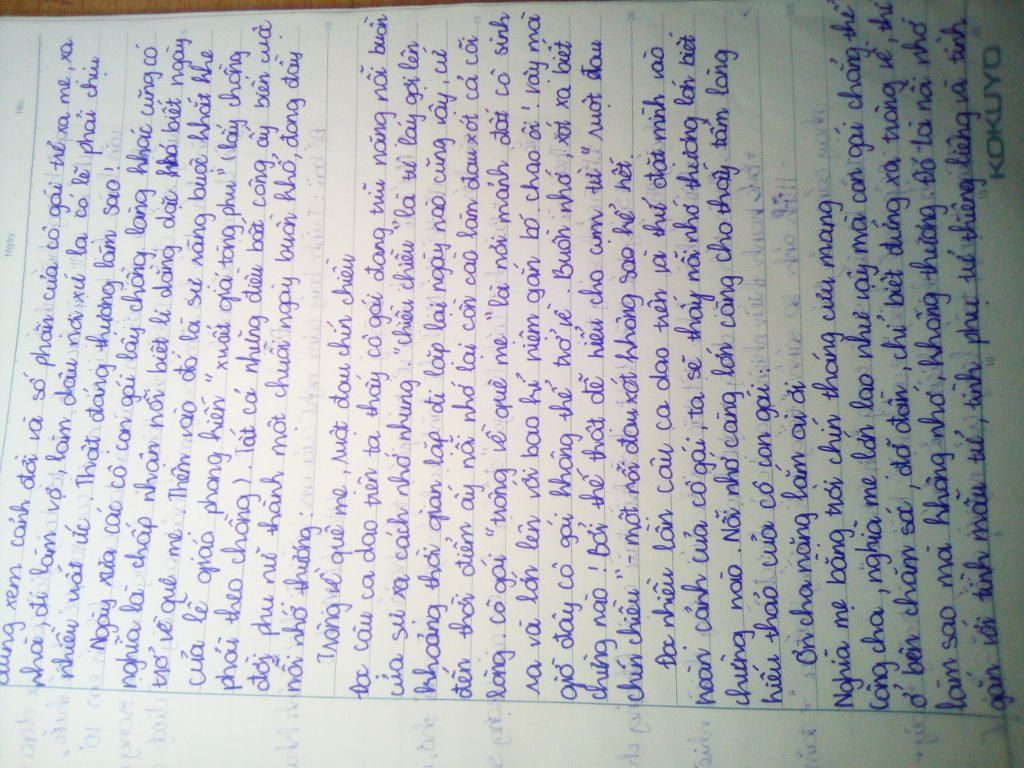 Ngày
No.
dung xem cảnh đời và số phần của cô gái trẻ, xa mẹ, xa
nhà, đi làm vợ, làm dâu nơi xứ lạ, có lẽ phải chịu
nhiều uất ức. Thật đáng thương làm sao!
Ngày xưa các cô con gái lấy chồng làng khác cũng có
nghĩa là chấp nhận nỗi biệt li dằng dặc khó biết ngày
trở về quê mẹ. Thêm vào đó là sự ràng buộc khắt khe
của lễ giáo phong kiến "xuất giá tòng phu" (lấy chồng
phải theo chồng). Tất cả những điều bất công ấy biến cuộc
đời phụ nữ thành một chuỗi ngày buồn khổ, đong đầy
nỗi nhớ thương:
Trông về quê mẹ, ruột đau chín chiều
Đọc câu ca dao trên ta thấy cô gái đang trĩu nặng nỗi buồn
của sự xa cách nhớ nhung. "chiều chiều" là từ láy gợi lên
khoảng thời gian lặp đi lặp lại ngày nào cũng vậy, cứ
đến thời điểm ấy nỗi nhớ lại cồn cào làm đau xót cả cõi
lòng. cô gái "trông về quê mẹ" là nơi mảnh đất cô sinh
ra và lớn lên với bao kỉ niệm gắn bó chao ôi! vậy mà
giờ đây cô gái không thể trở về. Buồn nhớ, xót xa biết
chừng nào! Bởi thế thật dễ hiểu cho cụm từ "ruột đau
chín chiều" - một nỗi đau xót không sao kể hết.
Đọc nhiều lần câu ca dao trên và thử đặt mình vào
hoàn cảnh của cô gái, ta sẽ thấy nỗi nhớ thương lớn biết
chừng nào. Nỗi nhớ càng lớn càng cho thấy tấm lòng
hiếu thảo của cô con gái.
Ơn cha nặng lắm ai ơi
Nghĩa mẹ bằng trời chín tháng cưu mang
Công cha, nghĩa mẹ lớn lao như vậy mà con gái chẳng thể
ở bên chăm sóc, đỡ đần, chỉ biết đứng xa, trông về, thì
làm sao mà không nhớ, không thương. Đó là nỗi nhớ
gắn với tình mẫu tử, tình phụ tử thiêng liêng và tình
KOKUYO